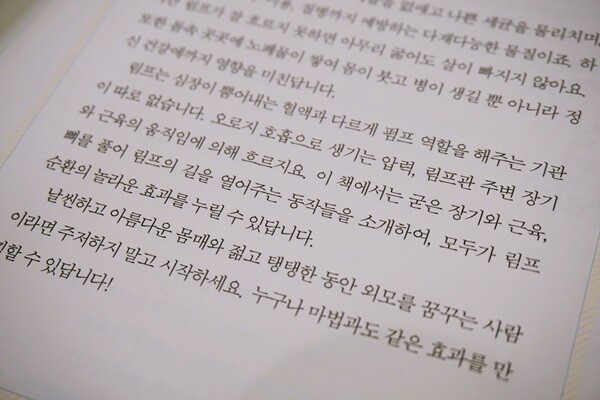 을 없애고 나쁜 세균을 물리치며,
질병까지 예방하는 다재다능한 물질이죠. 하
림프가 잘 흐르지 못하면 아무리 굶어도 살이 빠지지 않아요.
또한 몸속 곳곳에 노폐물이 쌓여 몸이 붓고 병이 생길 뿐 아니라 정
신 건강에까지 영향을 미친답니다.
림프는 심장이 뿜어내는 혈액과 다르게 펌프 역할을 해주는 기관
이 따로 없습니다. 오로지 호흡으로 생기는 압력, 림프관 주변 장기
와 근육의 움직임에 의해 흐르지요. 이 책에서는 굳은 장기와 근육,
뼈를 풀어 림프의 길을 열어주는 동작들을 소개하여, 모두가 림프
순환의 놀라운 효과를 누릴 수 있답니다.
날씬하고 아름다운 몸매와 젊고 탱탱한 동안 외모를 꿈꾸는 사람
이라면 주저하지 말고 시작하세요. 누구나 마법과도 같은 효과를 만
할 수 있답니다!